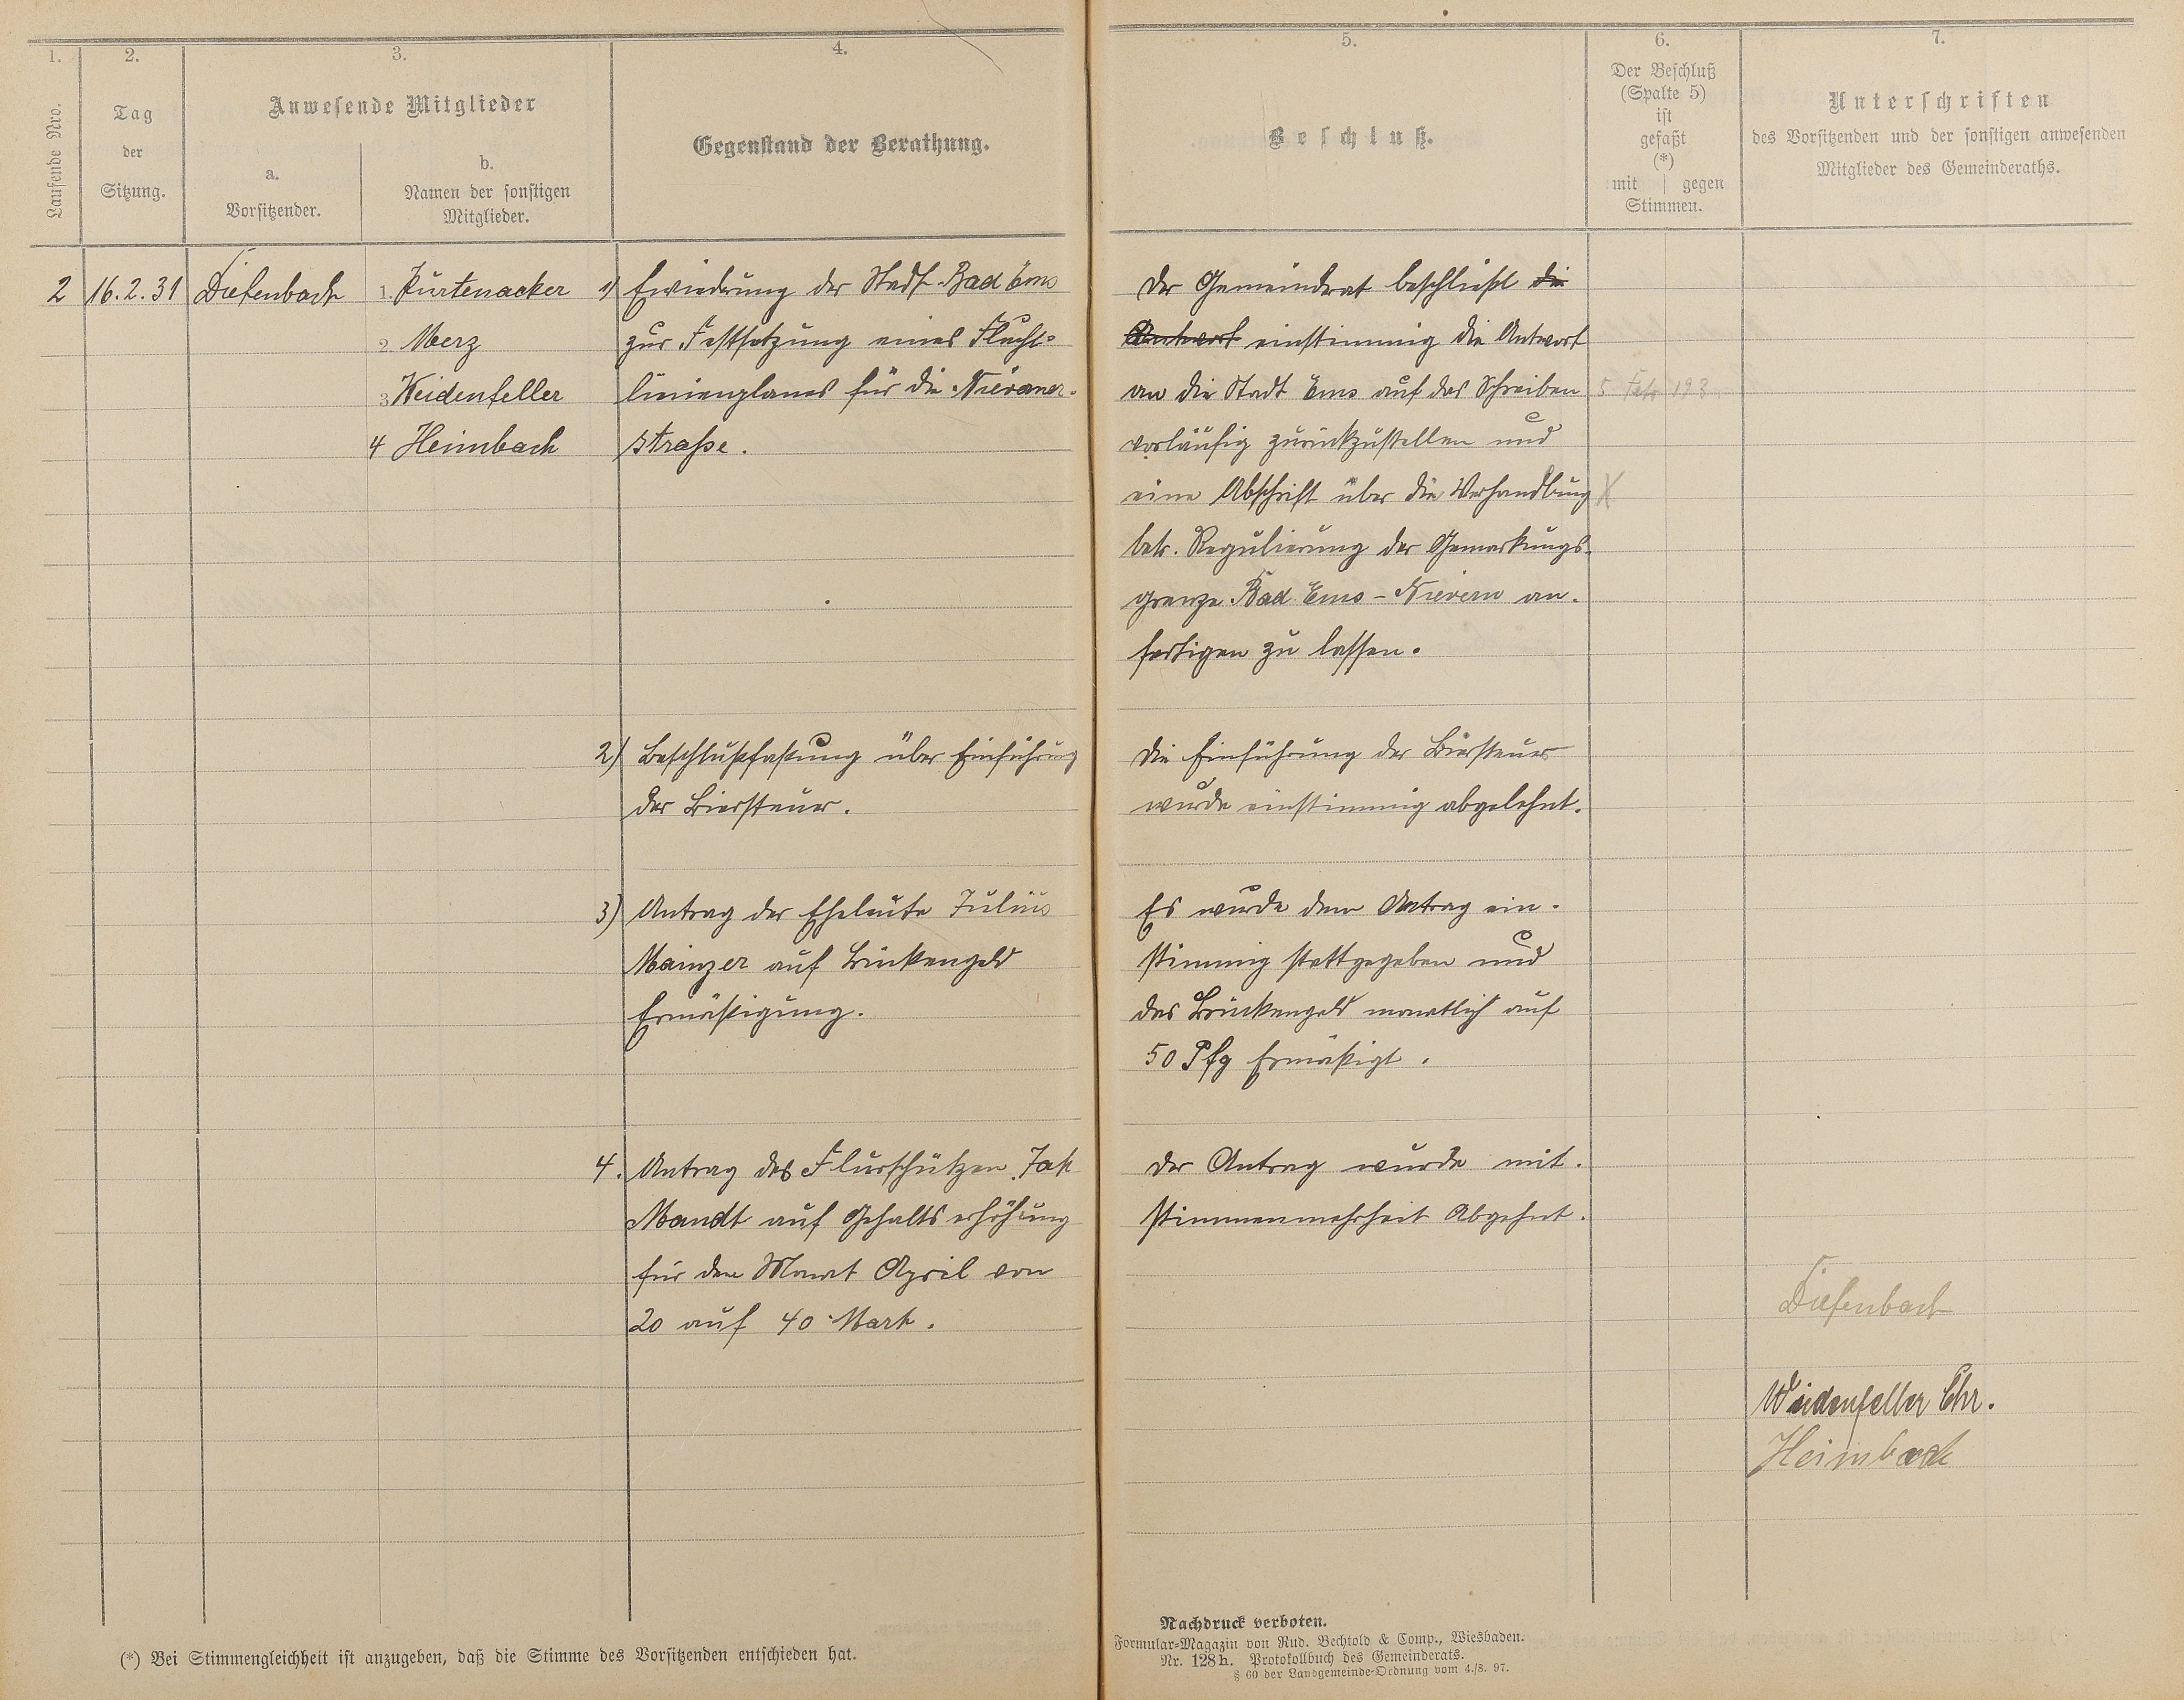 1.
2.
3.
4.
Laufende Nro.
Tag
der
Sitzung.
Anwesende Mitglieder
a.
Vorsitzender.
b.
Namen der sonstigen
Mitglieder.
Gegenstand der Berathung.
2
16.2.31
Diefenbach
1. Kurtenacker
2. Merz
3 Weidenfeller
4 Heimbach
1) Erwiederung der Stadt Bad Ems
zur Festsetzung eines Flucht-
linienplanes für die Nieverner-
strasse.
2) Beschlußfaßung über Einführung
der Biersteuer.
3) Antrag der Eheleute Julius
Mainzer auf Brückengeld
Ermäßigung.
4. Antrag des Flurschützen Jak
Mandt auf Gehaltserhöhung
für den Monat April von
20 auf 40 Mark.
(*) Bei Stimmengleichheit ist anzugeben, daß die Stimme des Vorsitzenden entschieden hat.
5.
6.
7.
Beschluß.
Der Beschluß
(Spalte 5)
ist
gefaßt
(*)
mit | gegen
Stimmen.
Unterschriften
des Vorsitzenden und der sonstigen anwesenden
Mitglieder des Gemeinderaths.
Der Gemeinderat beschließt die
Antwort einstimmig die Antwort
an die Stadt Ems auf das Schreiben 5 Febr 193
vorläufig zurückzustellen und
eine Abschrift über die Verhandlung X
betr. Regulierung der Gemarkungs-
grenze Bad Ems - Nievern an-
fertigen zu lassen.
Die Einführung der Biersteuer
wurde einstimmig abgelehnt.
Es wurde dem Antrag ein-
stimmig stattgegeben und
das Brückengeld monatlich auf
50 Pfg Ermäßigt.
Der Antrag wurde mit.
Stimmenmehrheit Abgehnt.
Diefenbach
Weidenfeller Chr.
Heimbach
Nachdruck verboten.
Formular-Magazin von Rud. Bechtold & Comp., Wiesbaden.
Nr. 128h. Protokollbuch des Gemeinderats.
§ 60 der Landgemeinde-Ordnung vom 4./8. 97.